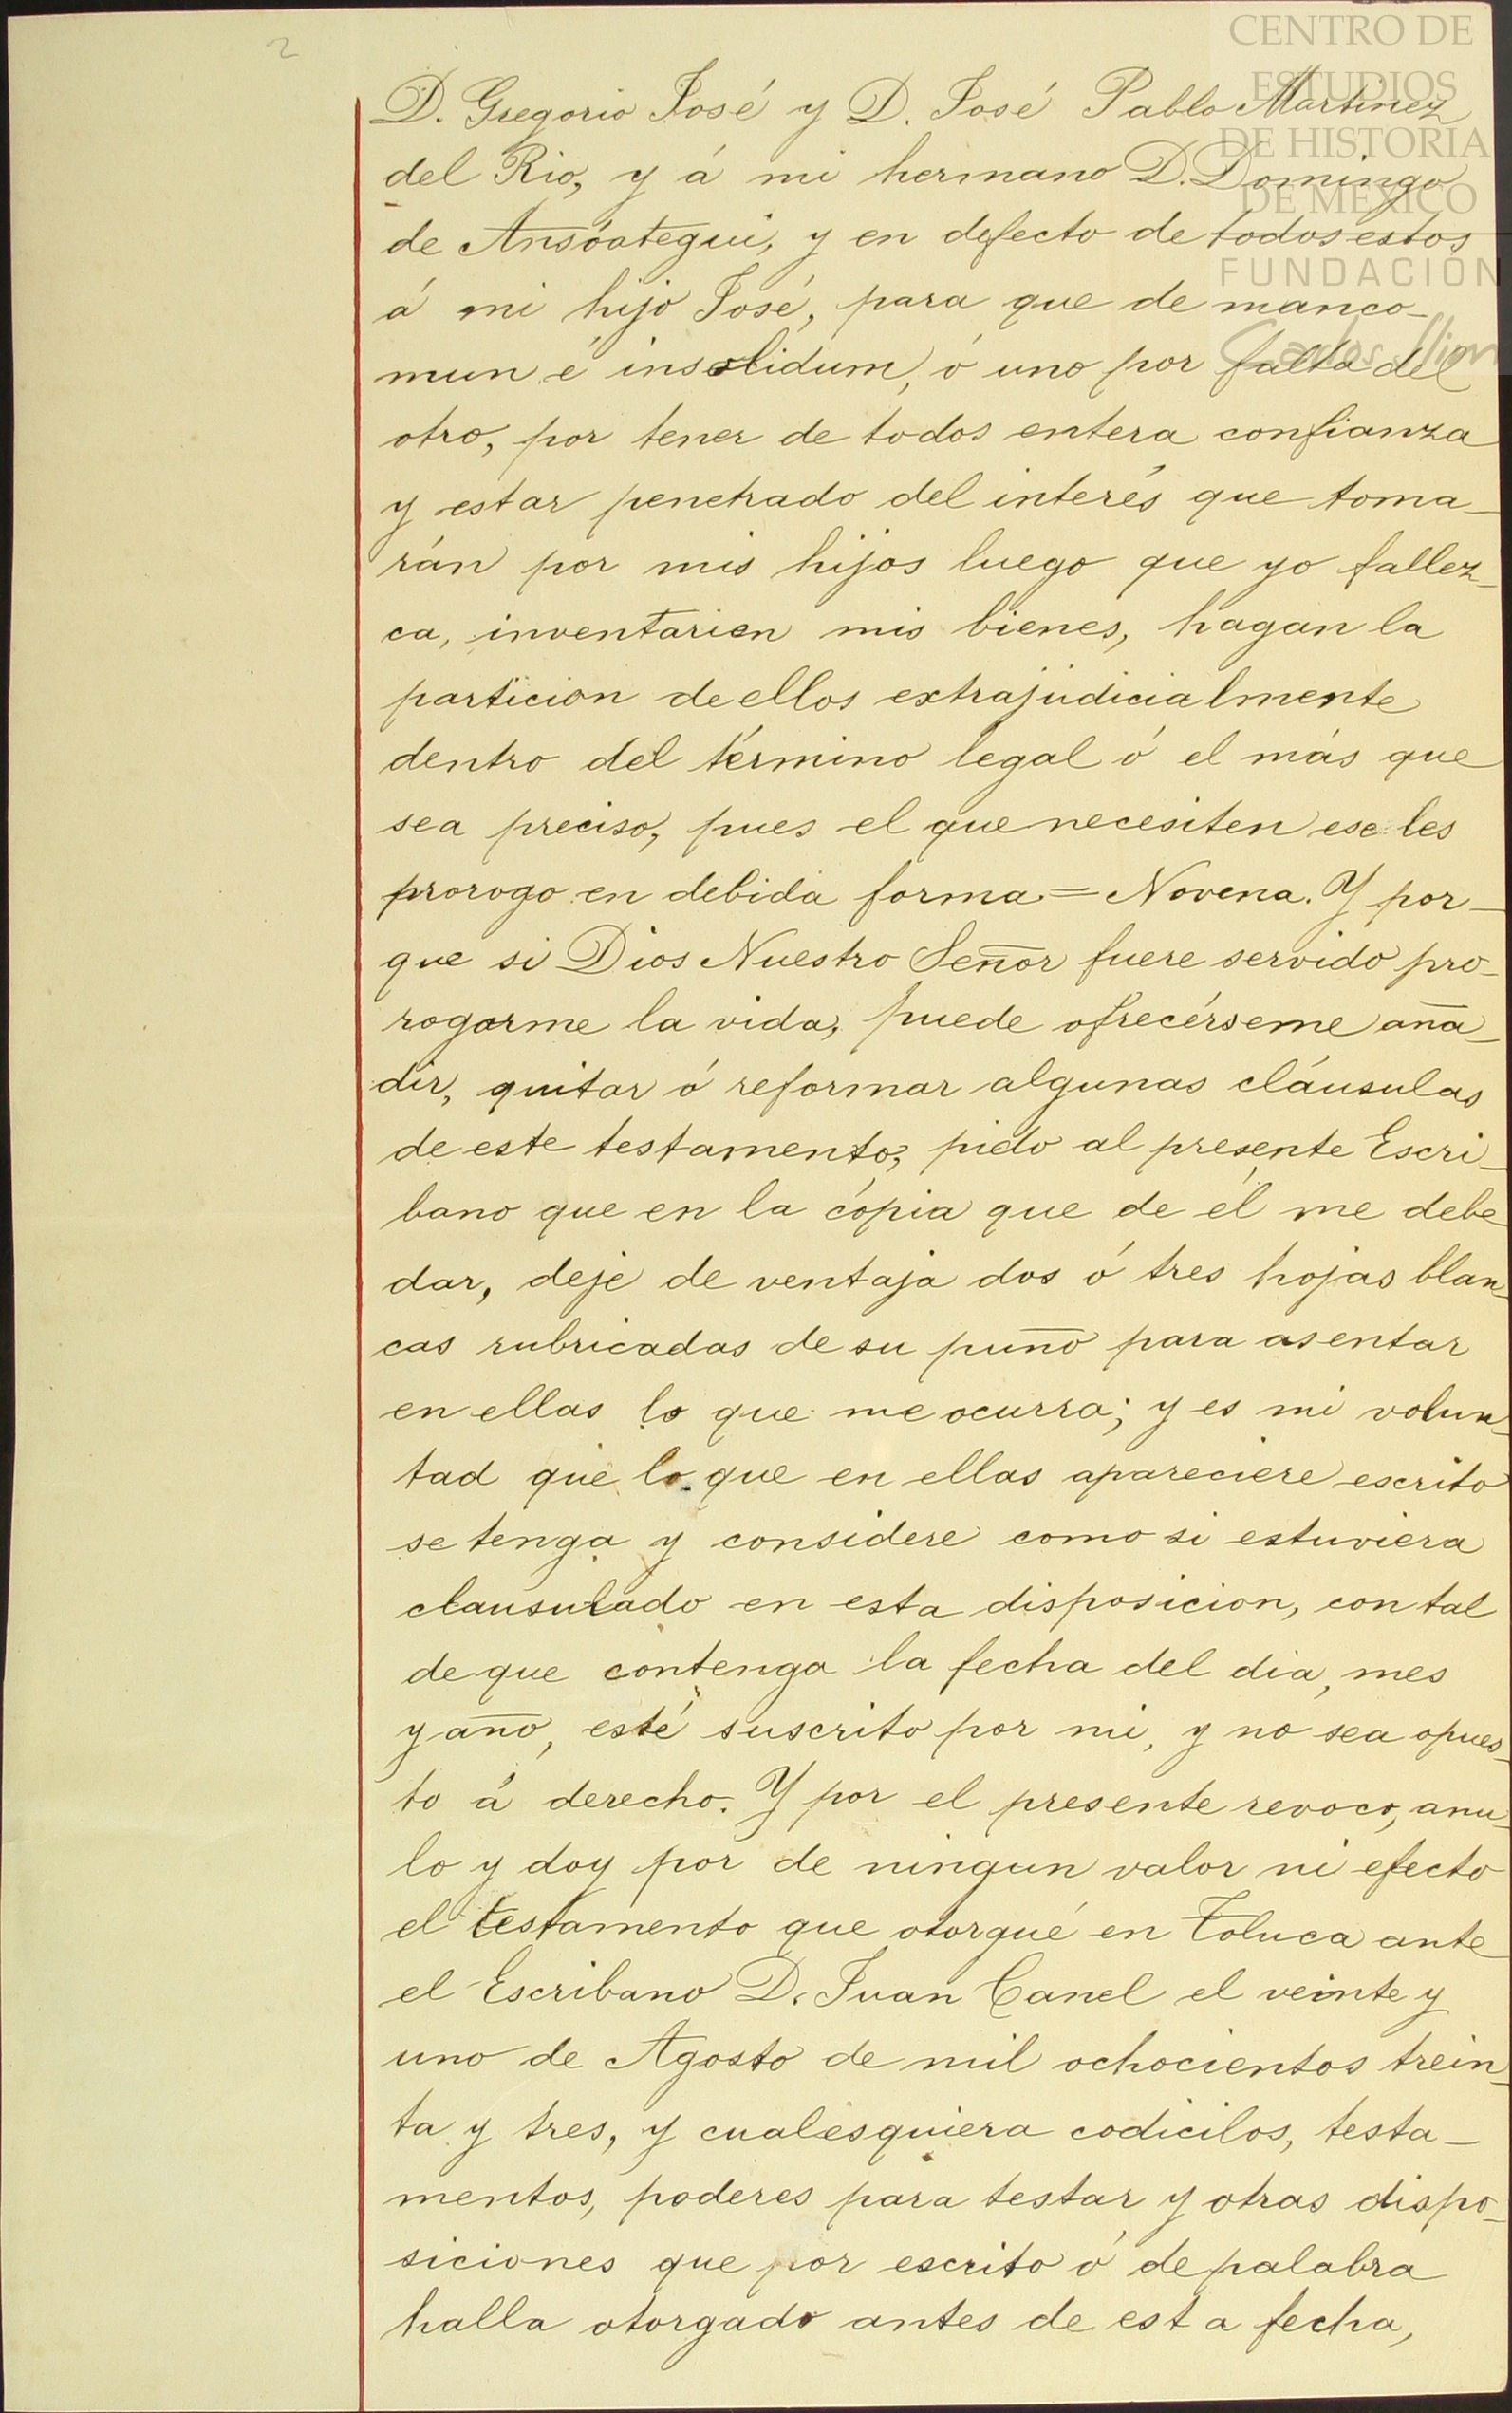 2
CENTRO DE
ESTUDIOS
DE HISTORIA
DE MÉXICO
FUNDACIÓN
Carlos Slim
D. Gregorio José y D. José Pablo Martinez
del Rio, y á mi hermano D. Domingo
de Ansóategui, y en defecto de todos estos
á mi hijo José, para que de manco-
mun é insolidum, ó uno por falta del
otro, por tener de todos entera confianza
y estar penetrado del interés que toma-
rán por mis hijos luego que yo fallez-
ca, inventarien mis bienes, hagan la
particion de ellos extrajudicialmente
dentro del término legal ó el más que
sea preciso, pues el que necesiten ese les
prorogo en debida forma.= Novena. Y por-
que si Dios Nuestro Señor fuere servido pro-
rogarme la vida, puede ofrecérseme aña-
dir, quitar ó reformar algunas cláusulas
de este testamento, pido al presente Escri-
bano que en la cópia que de él me debe
dar, deje de ventaja dos ó tres hojas blan-
cas rubricadas de su puño para asentar
en ellas lo que me ocurra; y es mi volun-
tad que lo que en ellas apareciere escrito
se tenga y considere como si estuviera
clausulado en esta disposicion, con tal
de que contenga la fecha del dia, mes
y año, esté suscrito por mi, y no sea opues-
to á derecho. Y por el presente revoco, anu-
lo y doy por de ningun valor ni efecto
el testamento que otorgué en Toluca ante
el Escribano D. Juan Canel el veinte y
uno de Agosto de mil ochocientos trein-
ta y tres, y cualesquiera codicilos, testa-
mentos, poderes para testar y otras dispo-
siciones que por escrito ó de palabra
halla otorgado antes de esta fecha,